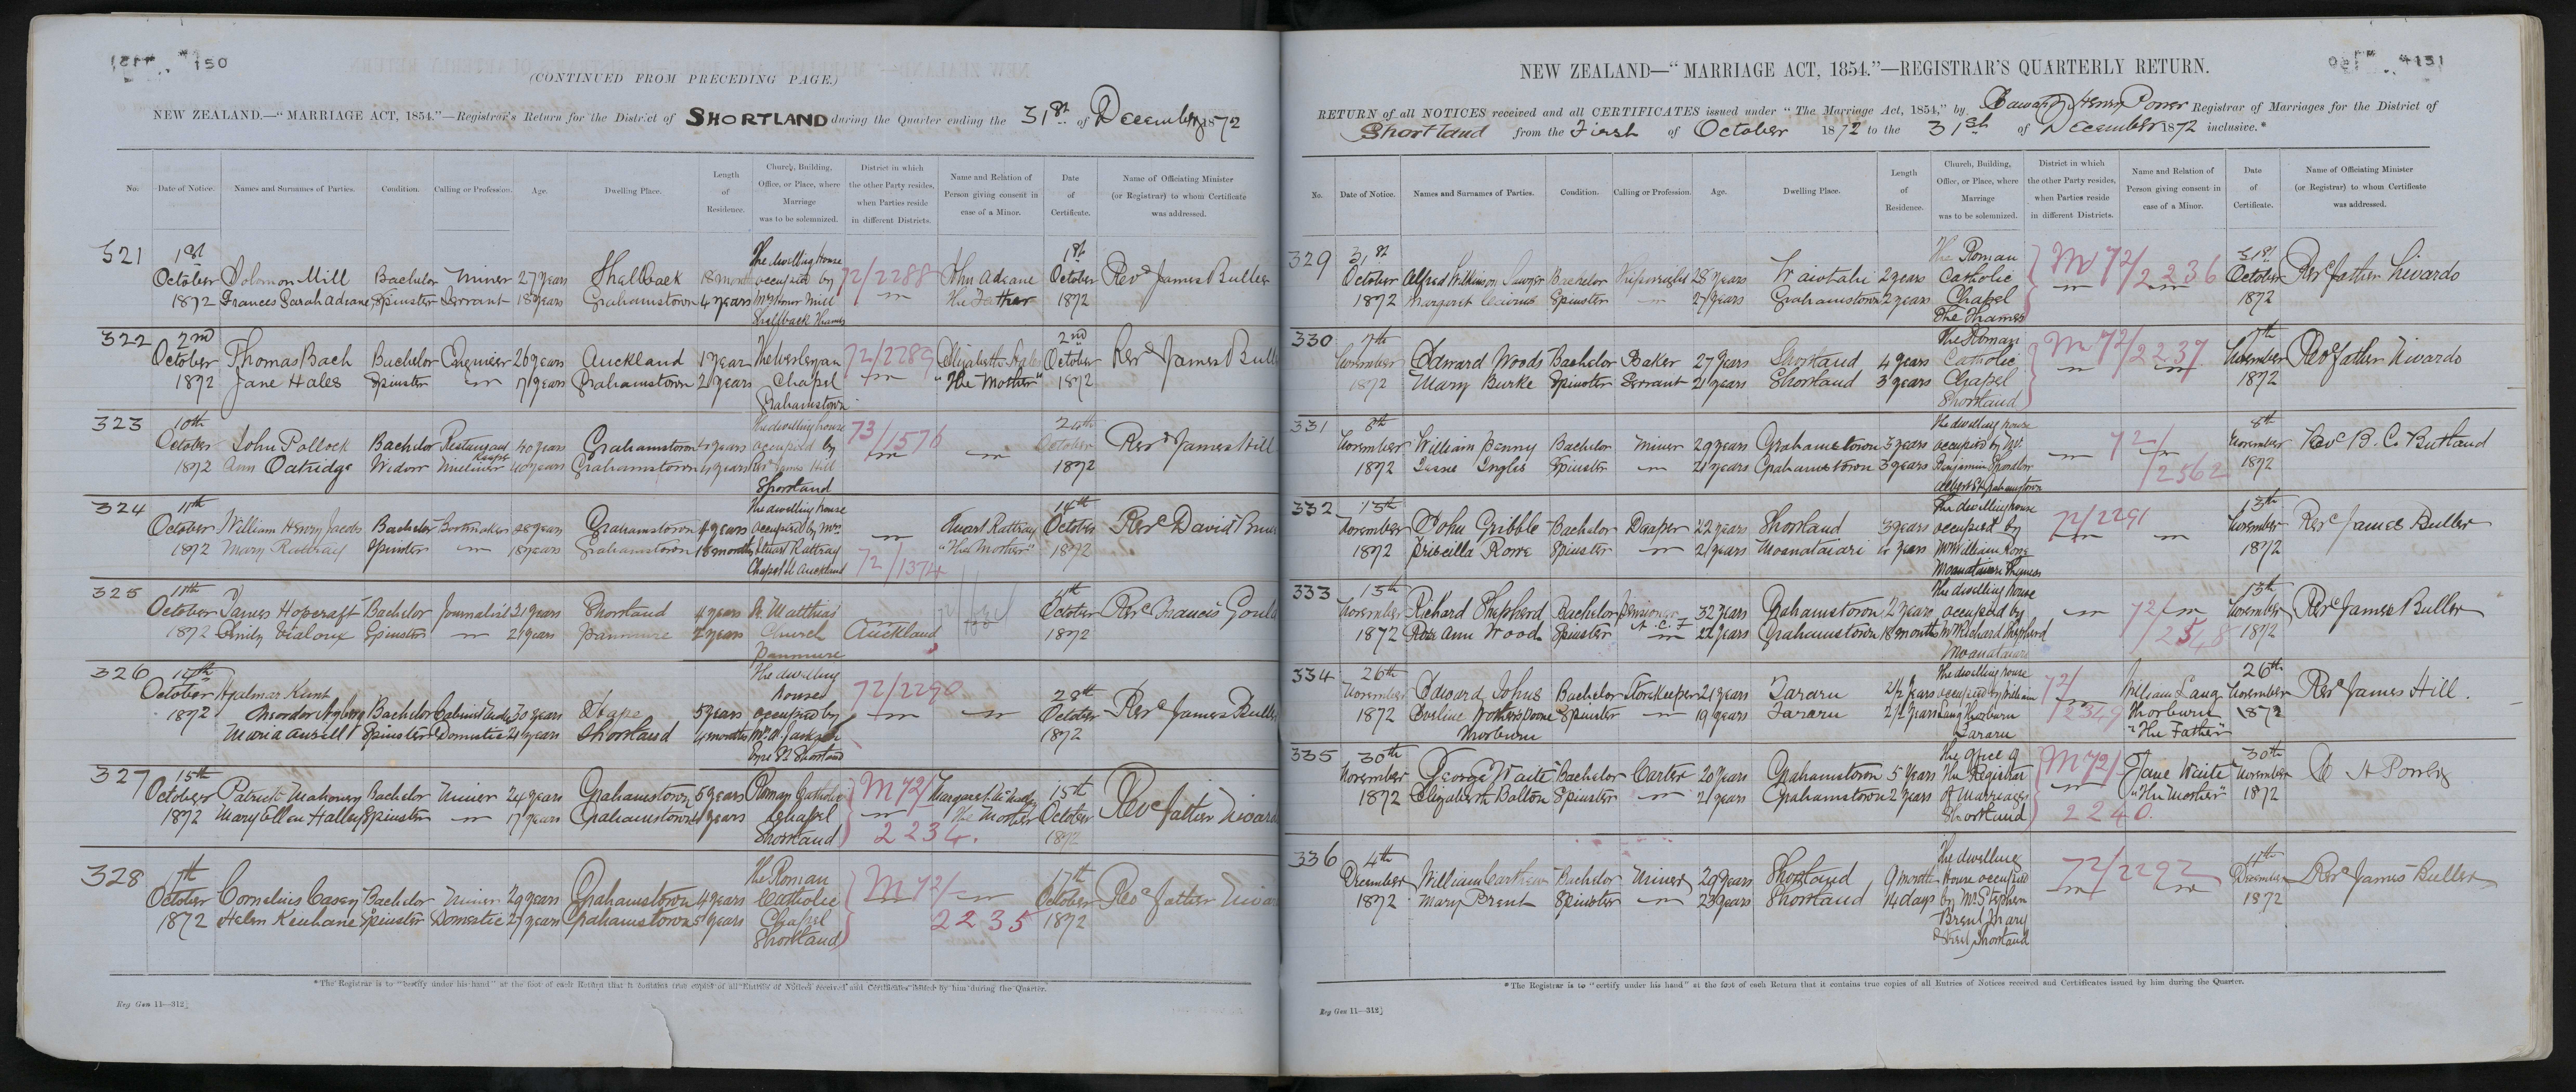 150
(CONTINUED FROM PRECEDING PAGE.)
NEW ZEALAND.—"MARRIAGE ACT, 1854."—Registrar's Return for the District of SHORTLAND during the Quarter ending the 31st of December 1872
No. Date of Notice. Names and Surnames of Parties. Condition. Calling or Profession. Age. Dwelling Place. Length of Residence. Church, Building, Office, or Place, where Marriage was to be solemnized. District in which the other Party resides, when Parties reside in different Districts. Name and Relation of Person giving consent in case of a Minor. Date of Certificate. Name of Officiating Minister (or Registrar) to whom Certificate was addressed.
321 1st The dwelling House 1st
October Solomon Mill Bachelor Miner 27 years Shellback occupied by 72/2288 John Adeane October Revd James Buller
1872 Frances Sarah Adeane Spinster Servant 18 years Grahamstown 4 years Mrs Honor Mill The Father 1872
Shellback Thames
322 2nd 2nd
October Thomas Bach Bachelor Engineer 26 years Auckland 1 year The Wesleyan 72/2289 Elizabeth October Revd James Bull
1872 Jane Hales Spinster 17 years Grahamstown 2 years Chapel "The Mother" 1872
Grahamstown
323 10th The dwelling house
October John Pollock Bachelor Restaurant Keeper 40 years Grahamstown 4 years occupied by 73/1576 October Revd James Hill
1872 Ann Oatridge Widow Milliner 40 years Grahamstown 4 years Mr James Hill 1872
Shortland
324 11th The dwelling house 14th
October William Henry Jacobs Bachelor Bootmaker 28 years Grahamstown 4 years occupied by Mrs Stuart Rattray October Revd David
1872 Mary Rattray Spinster 18 years Grahamstown 18 months Stuart Rattray "The Mother" 1872
Chapel St Auckland 72/1374
325 11th 11th
October James Hopcraft Bachelor Journalist 31 years Shortland 4 years St Matthias October Revd Francis Gould
1872 Emily Vialoux Spinster 21 years Panmure 2 years Church Auckland 1872
Panmure
326 The dwelling
October Hjalmar Kunt house 72/2290 28th
1872 Bachelor Cabinet maker 30 years 5 years occupied by October Revd James Buller
Maria Spinster Domestic 21 years Shortland 4 months 1872
Shortland
327 15th
October Patrick Mahoney Bachelor Miner 24 years Grahamstown 5 years Roman Catholic M 72/ Margaret 15th
1872 Mary Ellen Halley Spinster 17 years Grahamstown years Chapel The Mother October Revd father
Shortland 2234. 1872
328 17th The Roman 17th
October Cornelius Casey Bachelor Miner 29 years Grahamstown 4 years Catholic M 72/ October Revd father
1872 Helen Spinster Domestic 27 years Grahamstown 5 years Chapel 2235 1872
Shortland
*The Registrar is to "certify under his hand" at the foot of each Return that it contains true copies of all Entries of Notices received and Certificates issued by him during the Quarter.
Reg Gen 11—312]
NEW ZEALAND—"MARRIAGE ACT, 1854."—REGISTRAR'S QUARTERLY RETURN.
151
RETURN of all NOTICES received and all CERTIFICATES issued under "The Marriage Act, 1854," by Edward Henry Power Registrar of Marriages for the District of
Shortland from the First of October 1872 to the 31st of December 1872 inclusive.*
No. Date of Notice. Names and Surnames of Parties. Condition. Calling or Profession. Age. Dwelling Place. Length of Residence. Church, Building, Office, or Place, where Marriage was to be solemnized. District in which the other Party resides, when Parties reside in different Districts. Name and Relation of Person giving consent in case of a Minor. Date of Certificate. Name of Officiating Minister (or Registrar) to whom Certificate was addressed.
329 31st The Roman 31st
October Alfred Wilkinson Bachelor Shipwright 28 years Waiotahi 2 years Catholic M 72/2236 October Revd father Nivardo
1872 Margaret Cairns Spinster 27 years Grahamstown 2 years Chapel 1872
The Thames
330 7th The Roman 7th
November Edward Woods Bachelor Baker 27 years Shortland 4 years Catholic M 72/2237 November Revd father Nivardo
1872 Mary Burke Spinster Servant 21 years Shortland 3 years Chapel 1872
Shortland
331 8th The dwelling house 8th
November William Penny Bachelor Miner 29 years Grahamstown 5 years occupied by Mr 72/ November Revd B. C. Butland
1872 Jessie Inglis Spinster 21 years Grahamstown 3 years Benjamin 2562 1872
Albert St Grahamstown
332 13th The dwelling house 13th
November John Gribble Bachelor Draper 22 years Shortland 3 years occupied by 72/2291 November Revd James Buller
1872 Priscilla Rowe Spinster 21 years Moanataiari years Mr William Rowe 1872
Moanataiari Thames
333 13th The dwelling house 13th
November Richard Shepherd Bachelor pensioner 32 years Grahamstown 2 years occupied by 72/ November Revd James Buller
1872 Rose Ann Wood Spinster 22 years Grahamstown 18 months Mr Richard Shepherd 2548 1872
Moanataiari
334 26th The dwelling house 26th
November Edward Johns Bachelor Storekeeper 21 years Tararu 2½ years occupied by William 72/ William Laug November Revd James Hill.
1872 Wotherspoone Spinster 19 years Tararu 2½ years Laug Thorburn 2349 Thorburn 1872
Thorburn Tararu "The Father"
335 30th The Office of 30th
November George Waite Bachelor Carter 20 years Grahamstown 5 years The Registrar M 72/ Jane Waite November
1872 Elizabeth Balton Spinster 21 years Grahamstown 2 years of Marriages "The Mother" 1872
Shortland 2240.
336 4th The dwelling 4th
December William Carthew Bachelor Miner 29 years Shortland 9 months House occupied 72/2292 December Revd James Buller
1872 Mary Brent Spinster 23 years Shortland 14 days by Mr Stephen 1872
Brent Mary
Street Shortland
*The Registrar is to "certify under his hand" at the foot of each Return that it contains true copies of all Entries of Notices received and Certificates issued by him during the Quarter.
Reg Gen 11—312]